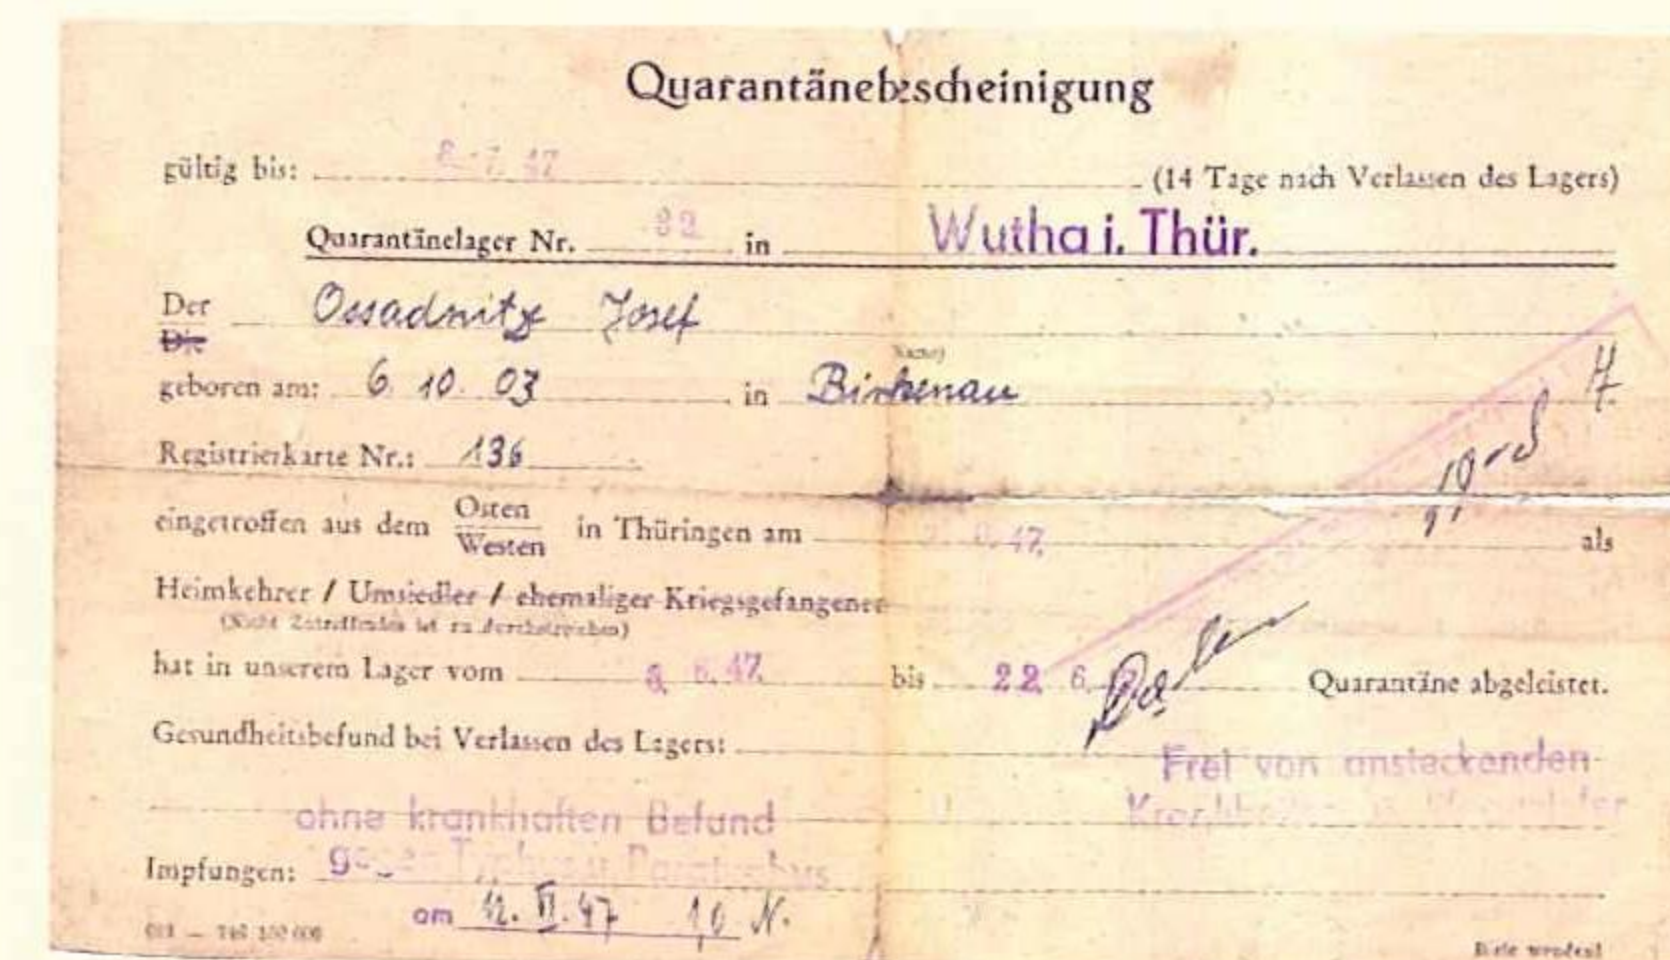 Quarantänebescheinigung
gültig bis: 8. 7. 47 (14 Tage nach Verlassen des Lagers)
Quarantänelager Nr. 32 in Wutha i. Thür.
Der Ossadnitz Josef
Die
(Name)
geboren am: 6. 10. 03 in Birkenau
H.
Registrierkarte Nr.: 136
eingetroffen aus dem Osten in Thüringen am 6. 47. als
Westen
Heimkehrer / Umsiedler / ehemaliger Kriegsgefangener
(Nicht Zutreffendes ist zu durchstreichen)
hat in unserem Lager vom 8. 6. 47. bis 22. 6. Quarantäne abgeleistet.
Gesundheitsbefund bei Verlassen des Lagers:
Frei von ansteckenden
ohne krankhaften Befund
Krankheiten u.
Impfungen: gegen Typhus u. Paratyphus
am 12. VI. 47 1,0 N.
Bitte wenden!